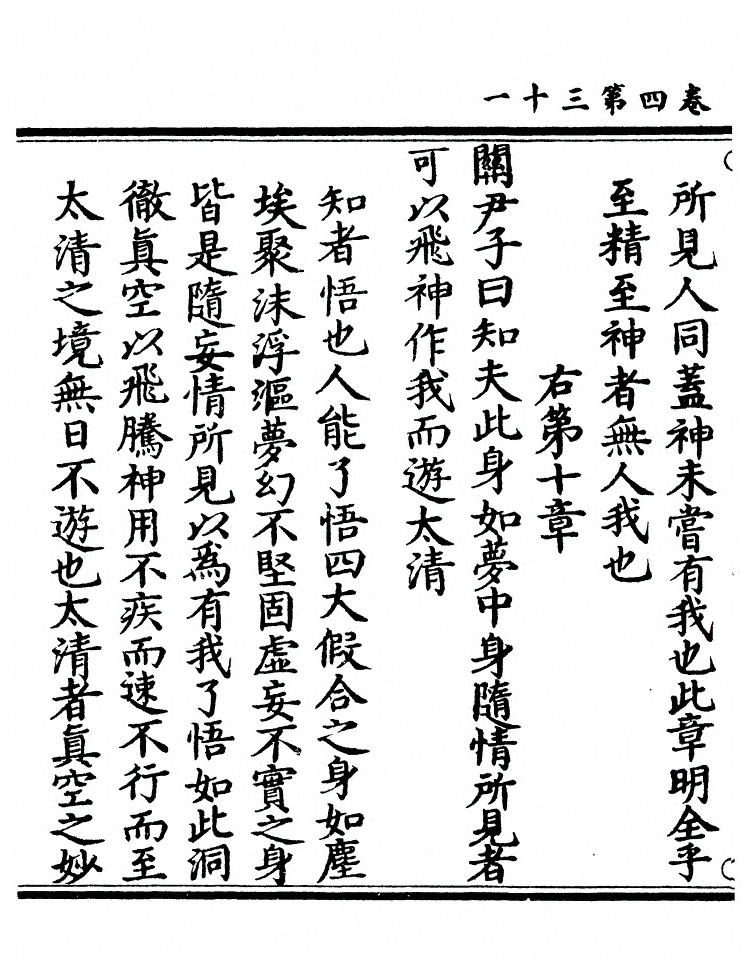 卷四第三十一
所見人同蓋神未嘗有我也此章明全乎
至精至神者無人我也
右第十章
關尹子曰知夫此身如夢中身隨情所見者
可以飛神作我而遊太清
知者悟也人能了悟四大假合之身如塵
埃聚沫浮漚夢幻不堅固虛妄不實之身
皆是隨妄情所見以為有我了悟如此洞
徹眞空以飛騰神用不疾而速不行而至
太清之境無日不遊也太清者眞空之妙